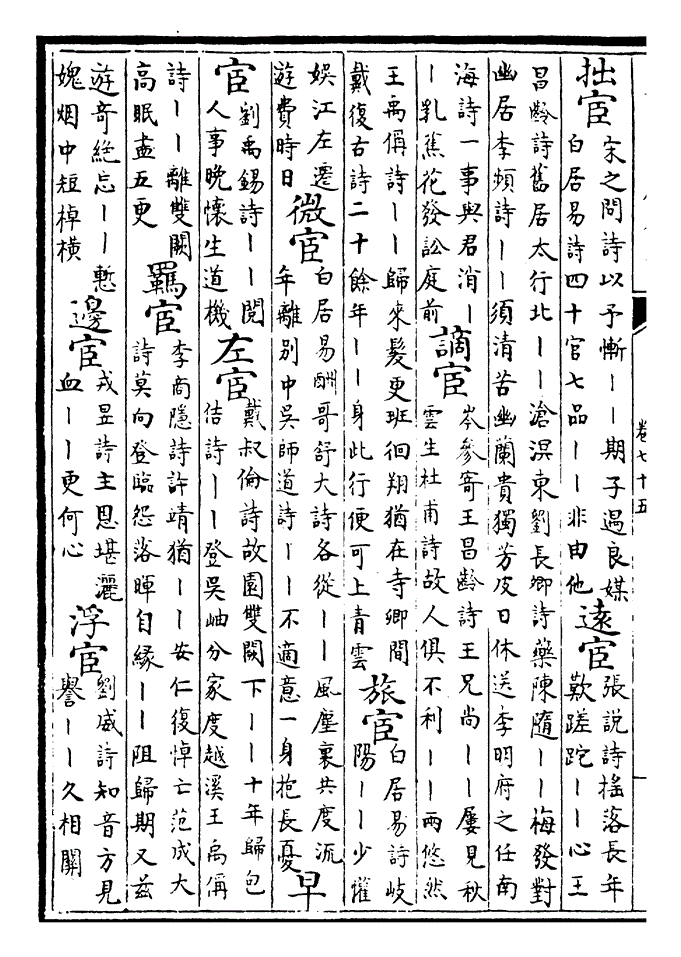 拙宦宋之問詩以予慚丨丨期子過良媒白居易詩四十官七品丨丨非由他遠宦張説詩摇落長年歎蹉跎丨丨心王
昌齡詩舊居太行北丨丨滄溟東劉長卿詩藥陳隨丨丨梅發對幽居李頻詩丨丨須清苦幽蘭貴獨芳皮日休送李明府之任南
海詩一事與君消丨丨乳蕉花發訟庭前謫宦岑參寄王昌齡詩王兄尚丨丨屢見秋雲生杜甫詩故人俱不利丨丨兩悠然
王禹偁詩丨丨歸來髮更班徊翔猶在寺卿間戴復古詩二十餘年丨丨身此行便可上青雲旅宦白居易詩岐陽丨丨少懽
娯江左遷遊費時日微宦白居易酬哥舒大詩各從丨丨風塵裏共度流年離别中吳師道詩丨丨不適意一身抱長憂早
宦劉禹錫詩丨丨閲人事晚懷生道機左宦戴叔倫詩故園雙闕下丨丨十年歸包佶詩丨丨登吳岫分家度越溪王禹偁
詩丨丨離雙闕高眠盡五更羈宦李商隱詩許靖猶丨丨安仁復悼亡范成大詩莫向登臨怨落暉自緣丨丨阻歸期又兹
遊奇絶忘丨丨慙媿烟中短棹横邊宦戎昱詩主恩堪灑血丨丨更何心浮宦劉威詩知音方見譽丨丨久相關
卷七十五